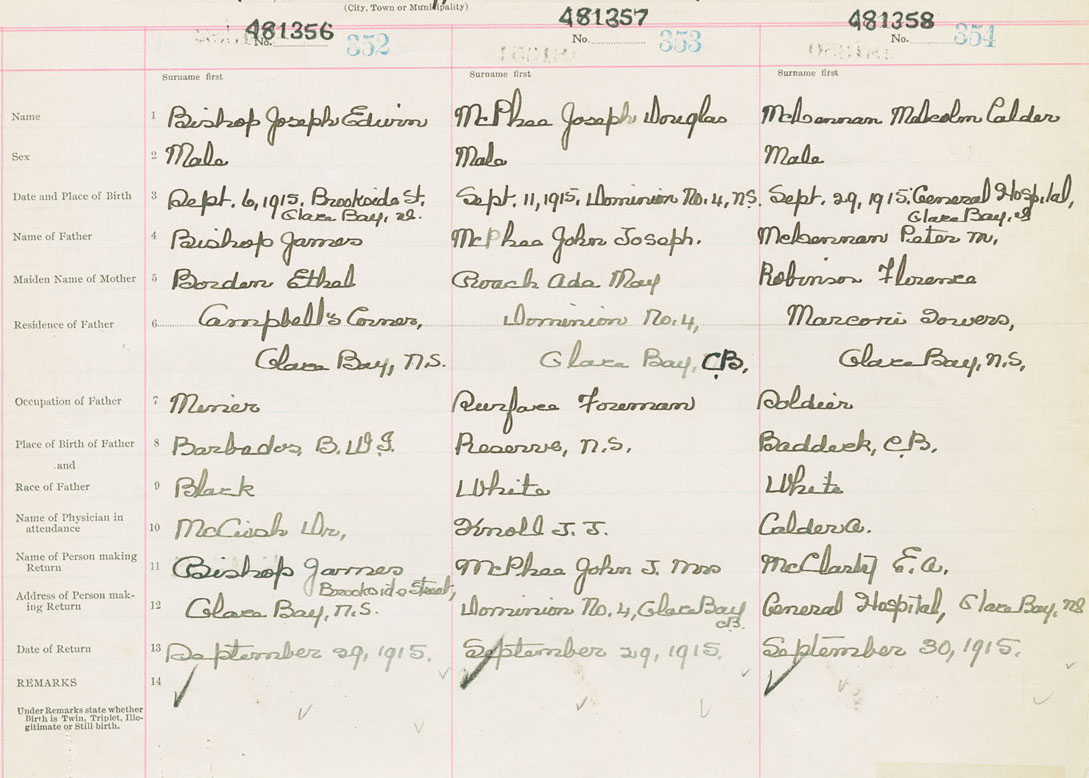 (City, Town or Municipality)
481356 481357 481358
No. 352 No. 353 No. 354
Surname first Surname first Surname first
Name 1 Bishop Joseph Edwin McPhee Joseph Douglas McLennan Malcolm Calder
Sex 2 Male Male Male
Date and Place of Birth 3 Sept. 6, 1915. Brookside St. Sept. 11, 1915. Dominion No. 4, N.S. Sept. 29, 1915. General Hospital,
Glace Bay, Glace Bay,
Name of Father 4 Bishop James McPhee John Joseph. McLennan Peter M.
Maiden Name of Mother 5 Borden Ethel Roach Ada May Robinson Florence
Residence of Father 6 Campbell's Corner, Dominion No. 4, Marconi Towers,
Glace Bay, N.S. Glace Bay, C.B. Glace Bay, N.S.
Occupation of Father 7 Miner Surface Foreman Soldier
Place of Birth of Father 8 Barbados, B.W.I. Reserve, N.S. Baddeck, C.B.
and
Race of Father 9 Black White White
Name of Physician in
attendance 10 Dr, Knoll J. J. Calder A.
Name of Person making
Return 11 Bishop James McPhee John J. Mrs McClarty E. A.
Brookside Street,
Address of Person mak-
ing Return 12 Glace Bay, N.S. Dominion No. 4, Glace Bay General Hospital, Glace Bay, NS
CB.
Date of Return 13 September 29, 1915. September 29, 1915. September 30, 1915.
REMARKS 14
Under Remarks state whether
Birth is Twin, Triplet, Ille-
gitimate or Still-birth.